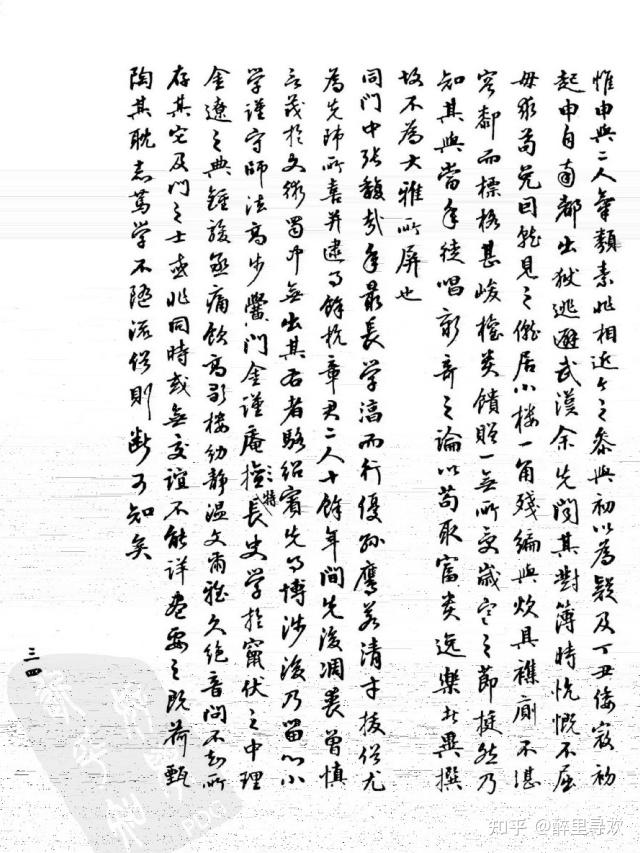 惟申與二人氣類素非相近今之參與初以為疑及丁丑倭寇初
起申自南都出獄逃避武漢余先聞其對簿時忼慨不屈
毋敢苟免因就見之僦居小樓一角殘編與炊具襍廁不堪
容鄰而標格甚峻權炎饋贈一無所受歲寒之節挺然乃
知其與當年徒唱窮奇之論以苟取富炎逸樂者異撰
故不為大雅所屏也
同門中張馥哉年最長學湻而行優孫鷹若清才拔俗尤
為先師所喜并逮事餘杭章君二人十餘年間先後凋喪曾慎
言茂於文術蜀中無出其右者駱紹賓先事博涉後乃留心小
學謹守師法高步黌門金謹庵擅長史學於窜伏之中理
之特
金遼之典鍾駿丞痛飲高歌樓幼靜溫文爾雅久絕音問不知所
存其它及門之士或非同時或無交誼不能詳盡要之既荷甄
陶其耽志篤學不隨流俗則斷可知矣
三四
知乎 @醉里寻欢